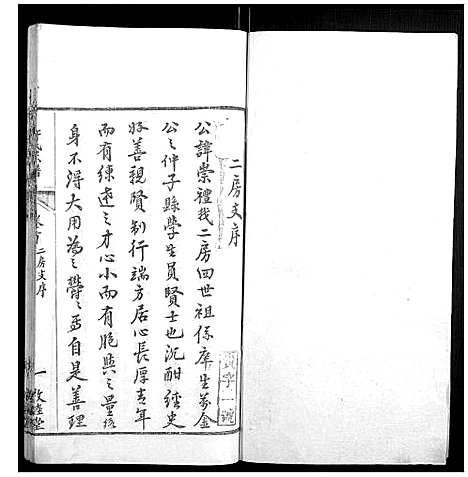 二房支序
公諱崇禮我二房四世祖係庠生萬金
公之仲子縣學生員賢士也沉酣經史
好善親賢制行端方居心長厚青年
而有練達之才心小而有脆與之量
身不得大用為之欝〻焉自是善理
字一號
卷首 二房支序
一 敦睦堂